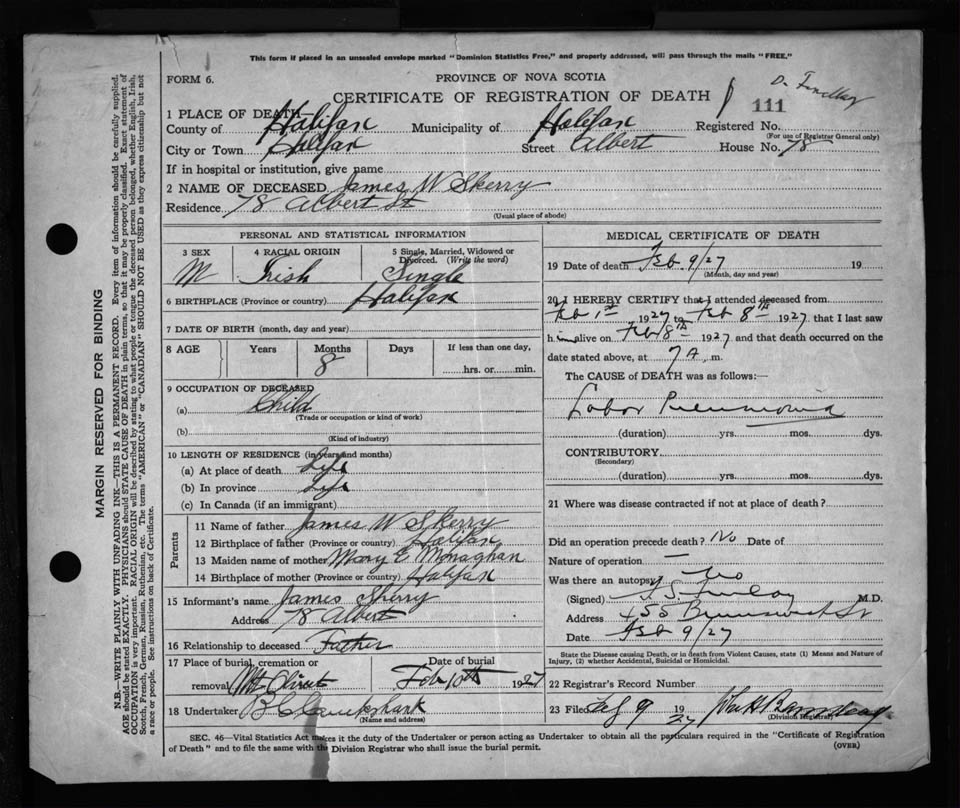 This form if placed in an unsealed envelope marked "Dominion Statistics Free," and properly addressed, will pass through the mails "FREE."
FORM 6.
PROVINCE OF NOVA SCOTIA
CERTIFICATE OF REGISTRATION OF DEATH
111
1 PLACE OF DEATH—
County of Halifax Municipality of Halifax Registered No.
(For use of Registrar General only)
City or Town Halifax Street Albert House No. 78
If in hospital or institution, give name
2 NAME OF DECEASED James W Skerry
Residence 78 Albert St
(Usual place of abode)
PERSONAL AND STATISTICAL INFORMATION
3 SEX 4 RACIAL ORIGIN 5 Single, Married, Widowed or Divorced. (Write the word)
M Irish Single
6 BIRTHPLACE (Province or country) Halifax
7 DATE OF BIRTH (month, day and year)
8 AGE Years Months Days If less than one day,
8 hrs. or min.
9 OCCUPATION OF DECEASED
(a) Child
(Trade or occupation or kind of work)
(b)
(Kind of industry)
10 LENGTH OF RESIDENCE (in years and months)
(a) At place of death Life
(b) In province Life
(c) In Canada (if an immigrant)
Parents
11 Name of father James W Skerry
12 Birthplace of father (Province or country) Halifax
13 Maiden name of mother Mary E Monaghan
14 Birthplace of mother (Province or country) Halifax
15 Informant's name James Skerry
Address 78 Albert
16 Relationship to deceased Father
17 Place of burial, cremation or Date of burial
removal Mt Olivet Feb 10th 1927
18 Undertaker
(Name and address)
MEDICAL CERTIFICATE OF DEATH
19 Date of death Feb. 9/27 19
(Month, day and year)
20 I HEREBY CERTIFY that I attended deceased from
Feb 1st 1927 to Feb 8th 1927 that I last saw
h im alive on Feb 8th 1927 and that death occurred on the
date stated above, at 7 A. m.
The CAUSE of DEATH was as follows:—
Lobar Pneumonia
(duration) yrs. mos. dys.
CONTRIBUTORY
(Secondary)
(duration) yrs. mos. dys.
21 Where was disease contracted if not at place of death?
Did an operation precede death? No Date of
Nature of operation —
Was there an autopsy No
(Signed) M.D.
Address 155 Brunswick St
Date Feb 9/27
State the Disease causing Death, or in death from Violent Causes, state (1) Means and Nature of
Injury, (2) whether Accidental, Suicidal or Homicidal.
22 Registrar's Record Number
23 Filed 9 1927
(Division Registrar)
SEC. 46—Vital Statistics Act makes it the duty of the Undertaker or person acting as Undertaker to obtain all the particulars required in the "Certificate of Registration
of Death" and to file the same with the Division Registrar who shall issue the burial permit.
(OVER)
MARGIN RESERVED FOR BINDING
N.B.—WRITE PLAINLY WITH UNFADING INK—THIS IS A PERMANENT RECORD. Every item of information should be carefully supplied.
AGE should be stated EXACTLY. PHYSICIANS should STATE CAUSE OF DEATH in plain terms, so that it may be properly classified. Exact statement of
OCCUPATION is very important. RACIAL ORIGIN will be described by stating to what people or tongue the deceased person belonged, whether English, Irish,
Scotch, French, German, Russian, Ruthenian, etc. The terms "AMERICAN" or "CANADIAN" SHOULD NOT BE USED as they express citizenship but not
a race or people. See instructions on back of Certificate.